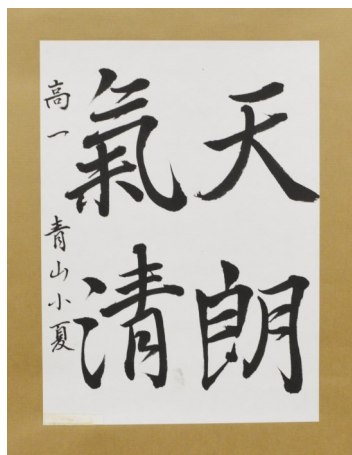 天朗
氣清
高一 青山小夏